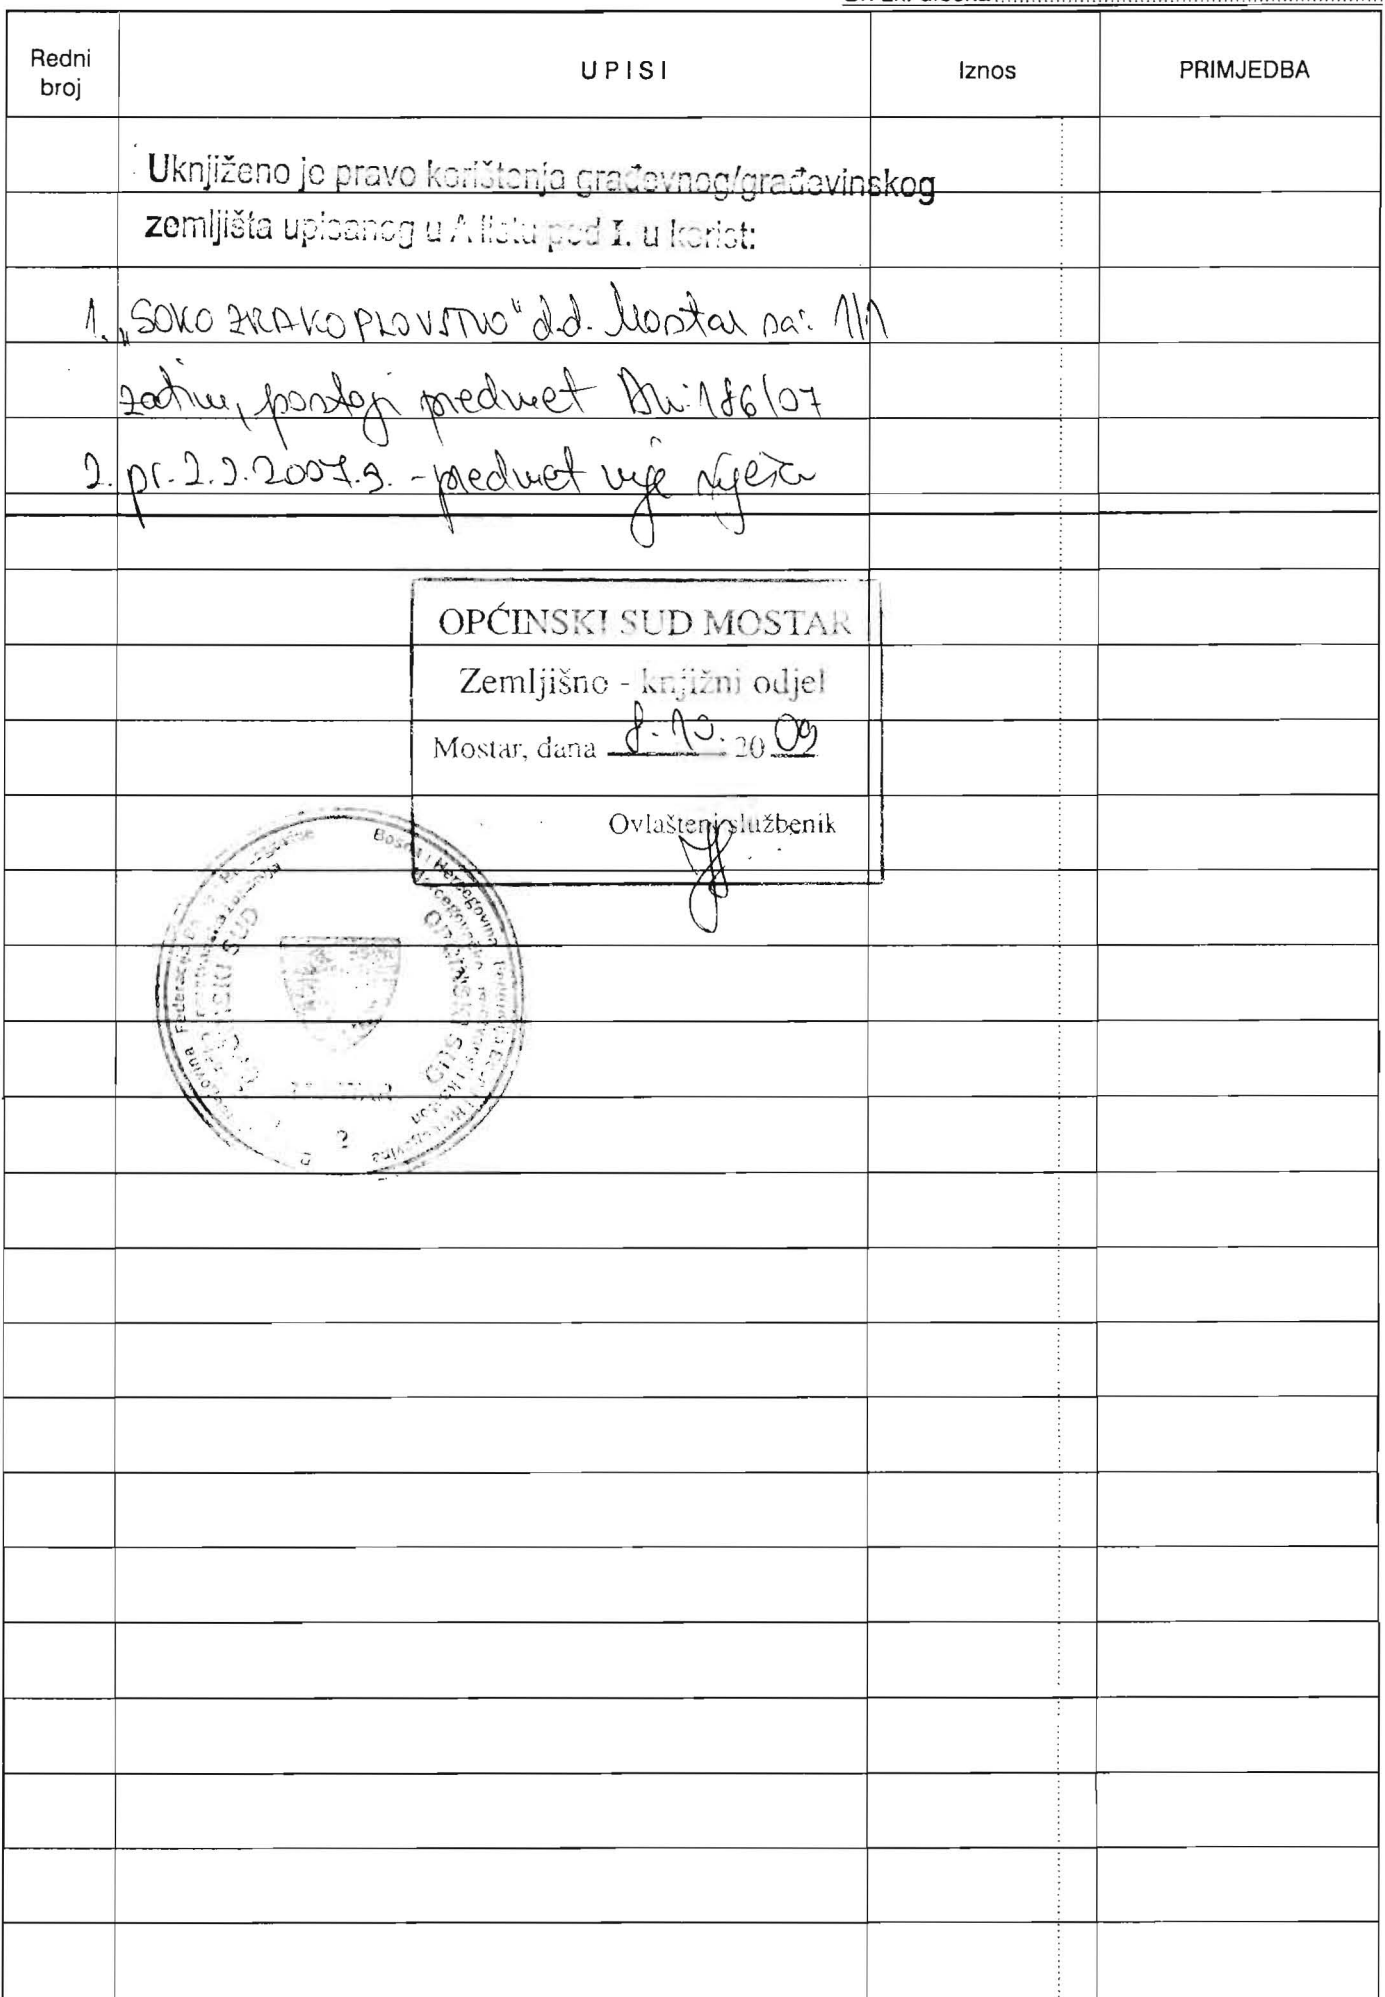 Redni broj
UPISI
Iznos
PRIMJEDBA
Uknjiženo je pravo korištenja građevnog/građevinskog
zemljišta upisanog u A listu pod I. u korist:
1. „SOKO ZRAKOPLOVSTVO" d.d. Mostar sa: 1/1
postoji predmet Dn: 186/07
2. pr. 2.2.2007.g. - predmet nije riješen
OPĆINSKI SUD MOSTAR
Zemljišno - knjižni odjel
Mostar, dana 8.10. 2009
Ovlašteni službenik
Bosna i Hercegovina
OPĆINSKI SUD